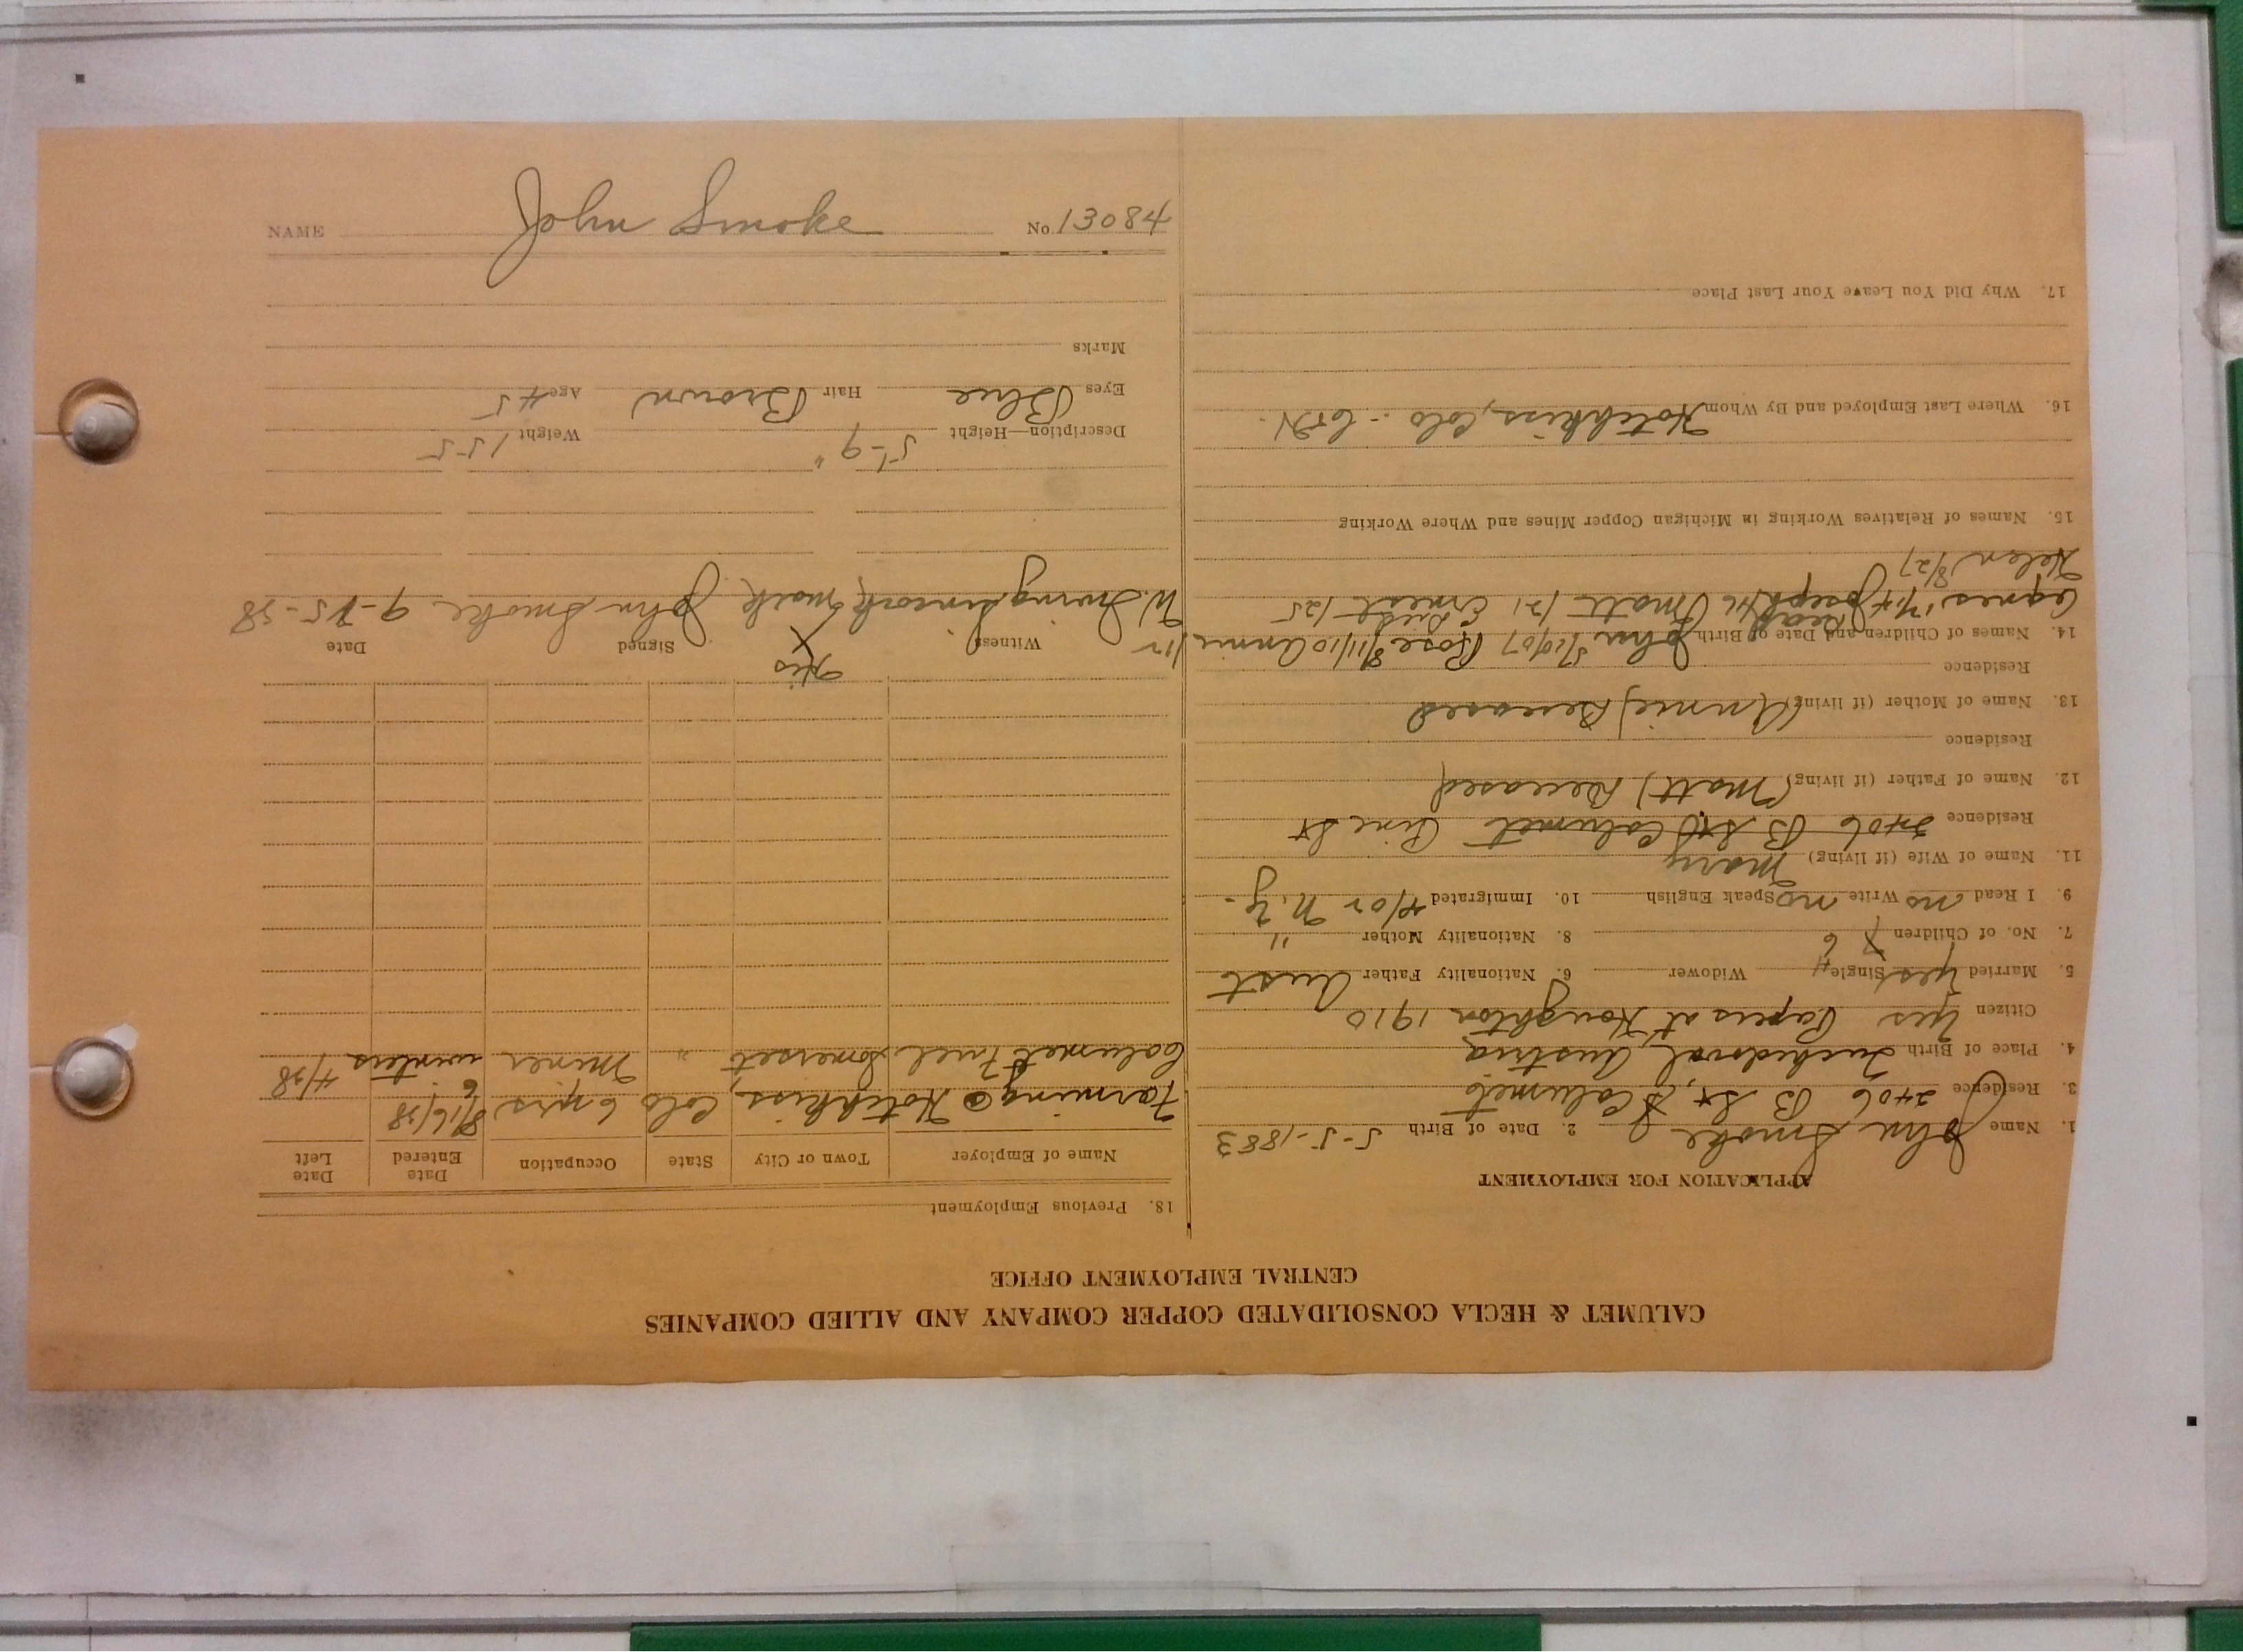 NAME John Smoke No. 13084
CALUMET & HECLA CONSOLIDATED COPPER COMPANY AND ALLIED COMPANIES
CENTRAL EMPLOYMENT OFFICE
APPLICATION FOR EMPLOYMENT
1. Name John Smoke 2. Date of Birth 5-5-1883
3. Residence 2406 B St, Calumet
4. Place of Birth Austria
Citizen Yes Papers at Houghton 1910
5. Married Yes Single Widower 6. Nationality Father Aust
7. No. of Children 6 8. Nationality Mother "
9. I Read no Write no Speak English 10. Immigrated N.Y.
11. Name of Wife (if living) Mary
Residence 2406 B St Calumet Pine St
12. Name of Father (if living) (Matt) Deceased
Residence
13. Name of Mother (if living) (Annie) Deceased
Residence
14. Names of Children and Date of Birth John 5/10/07 Rose 8/11/10 Annie /12
Agnes Joseph /16 Matt /21 Ernest /25
Helen 8/27
15. Names of Relatives Working in Michigan Copper Mines and Where Working
16. Where Last Employed and By Whom Hotchkiss, Colo.
17. Why Did You Leave Your Last Place
18. Previous Employment
Name of Employer Town or City State Occupation Date Entered Date Left
Farming @ Hotchkiss, Colo 6 yrs 8/16/28
Calumet Fuel Somerset " Miner 6 winters 4/28
His
Witness X Signed Date
W. Irving mark John Smoke 9-15-28
Description—Height 5'-9" Weight 155
Eyes Blue Hair Brown Age 45
Marks